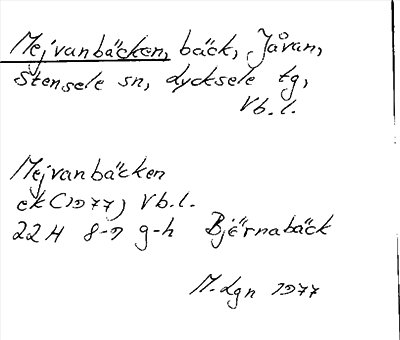 Mejvanbäcken, bäck, Jåvan,
Stensele sn, Lycksele tg,
Vb.l.
Mejvanbäcken
ek (1977) Vb.l.
22H 8-9 g-h Bjërnabäck
M.Lgn 1977